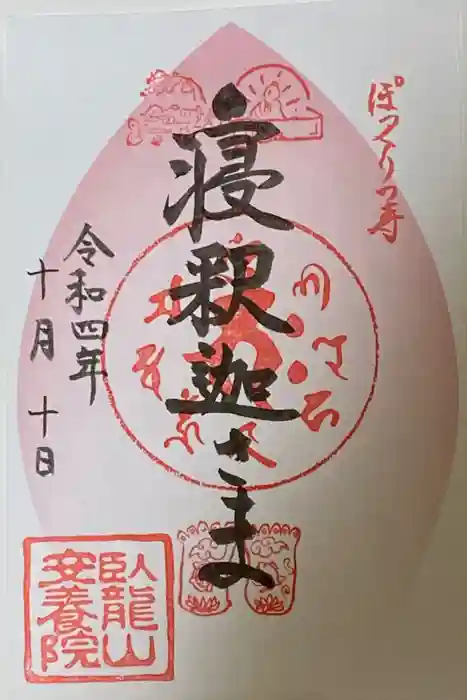 ぽっくり寺
寝釈迦さま
令和四年
十月十日
臥龍山
安養院